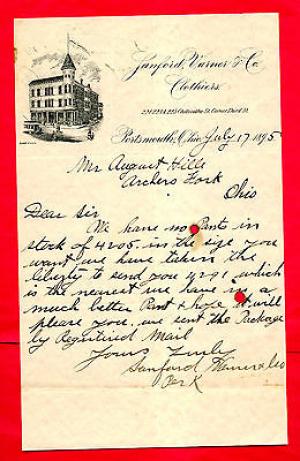 Sanford, Varner & Co.
Clothiers.
Portsmouth, Ohio, July 17 1895
Mr August Hills
Archers Fork
Ohio
Dear Sir
We have no Pants in
stock of 4205. in the size you
want, we have taken the
liberty to send you 4291, which
is the nearest we have in a
much better Pant & hope it will
please you. we sent the Package
by Registered Mail
Yours Truly
Sanford Varner & Co
Per K